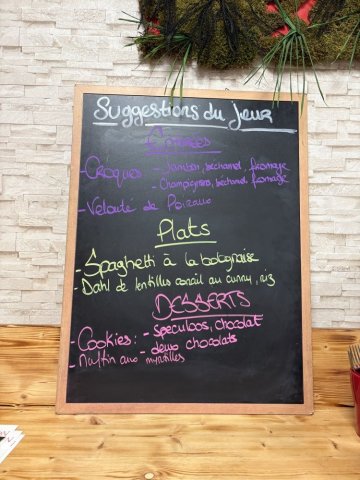 Suggestions du jour
Entrées
- Croques: - Jambon, béchamel, fromage
- Champignons, béchamel fromage
- Velouté de Poireaux
Plats
- Spaghetti à la bolognaise
- Dahl de lentilles corail au curry, riz
DESSERTS
- Cookies: - speculoos, chocolat
- deux chocolats
- Muffin aux myrtilles